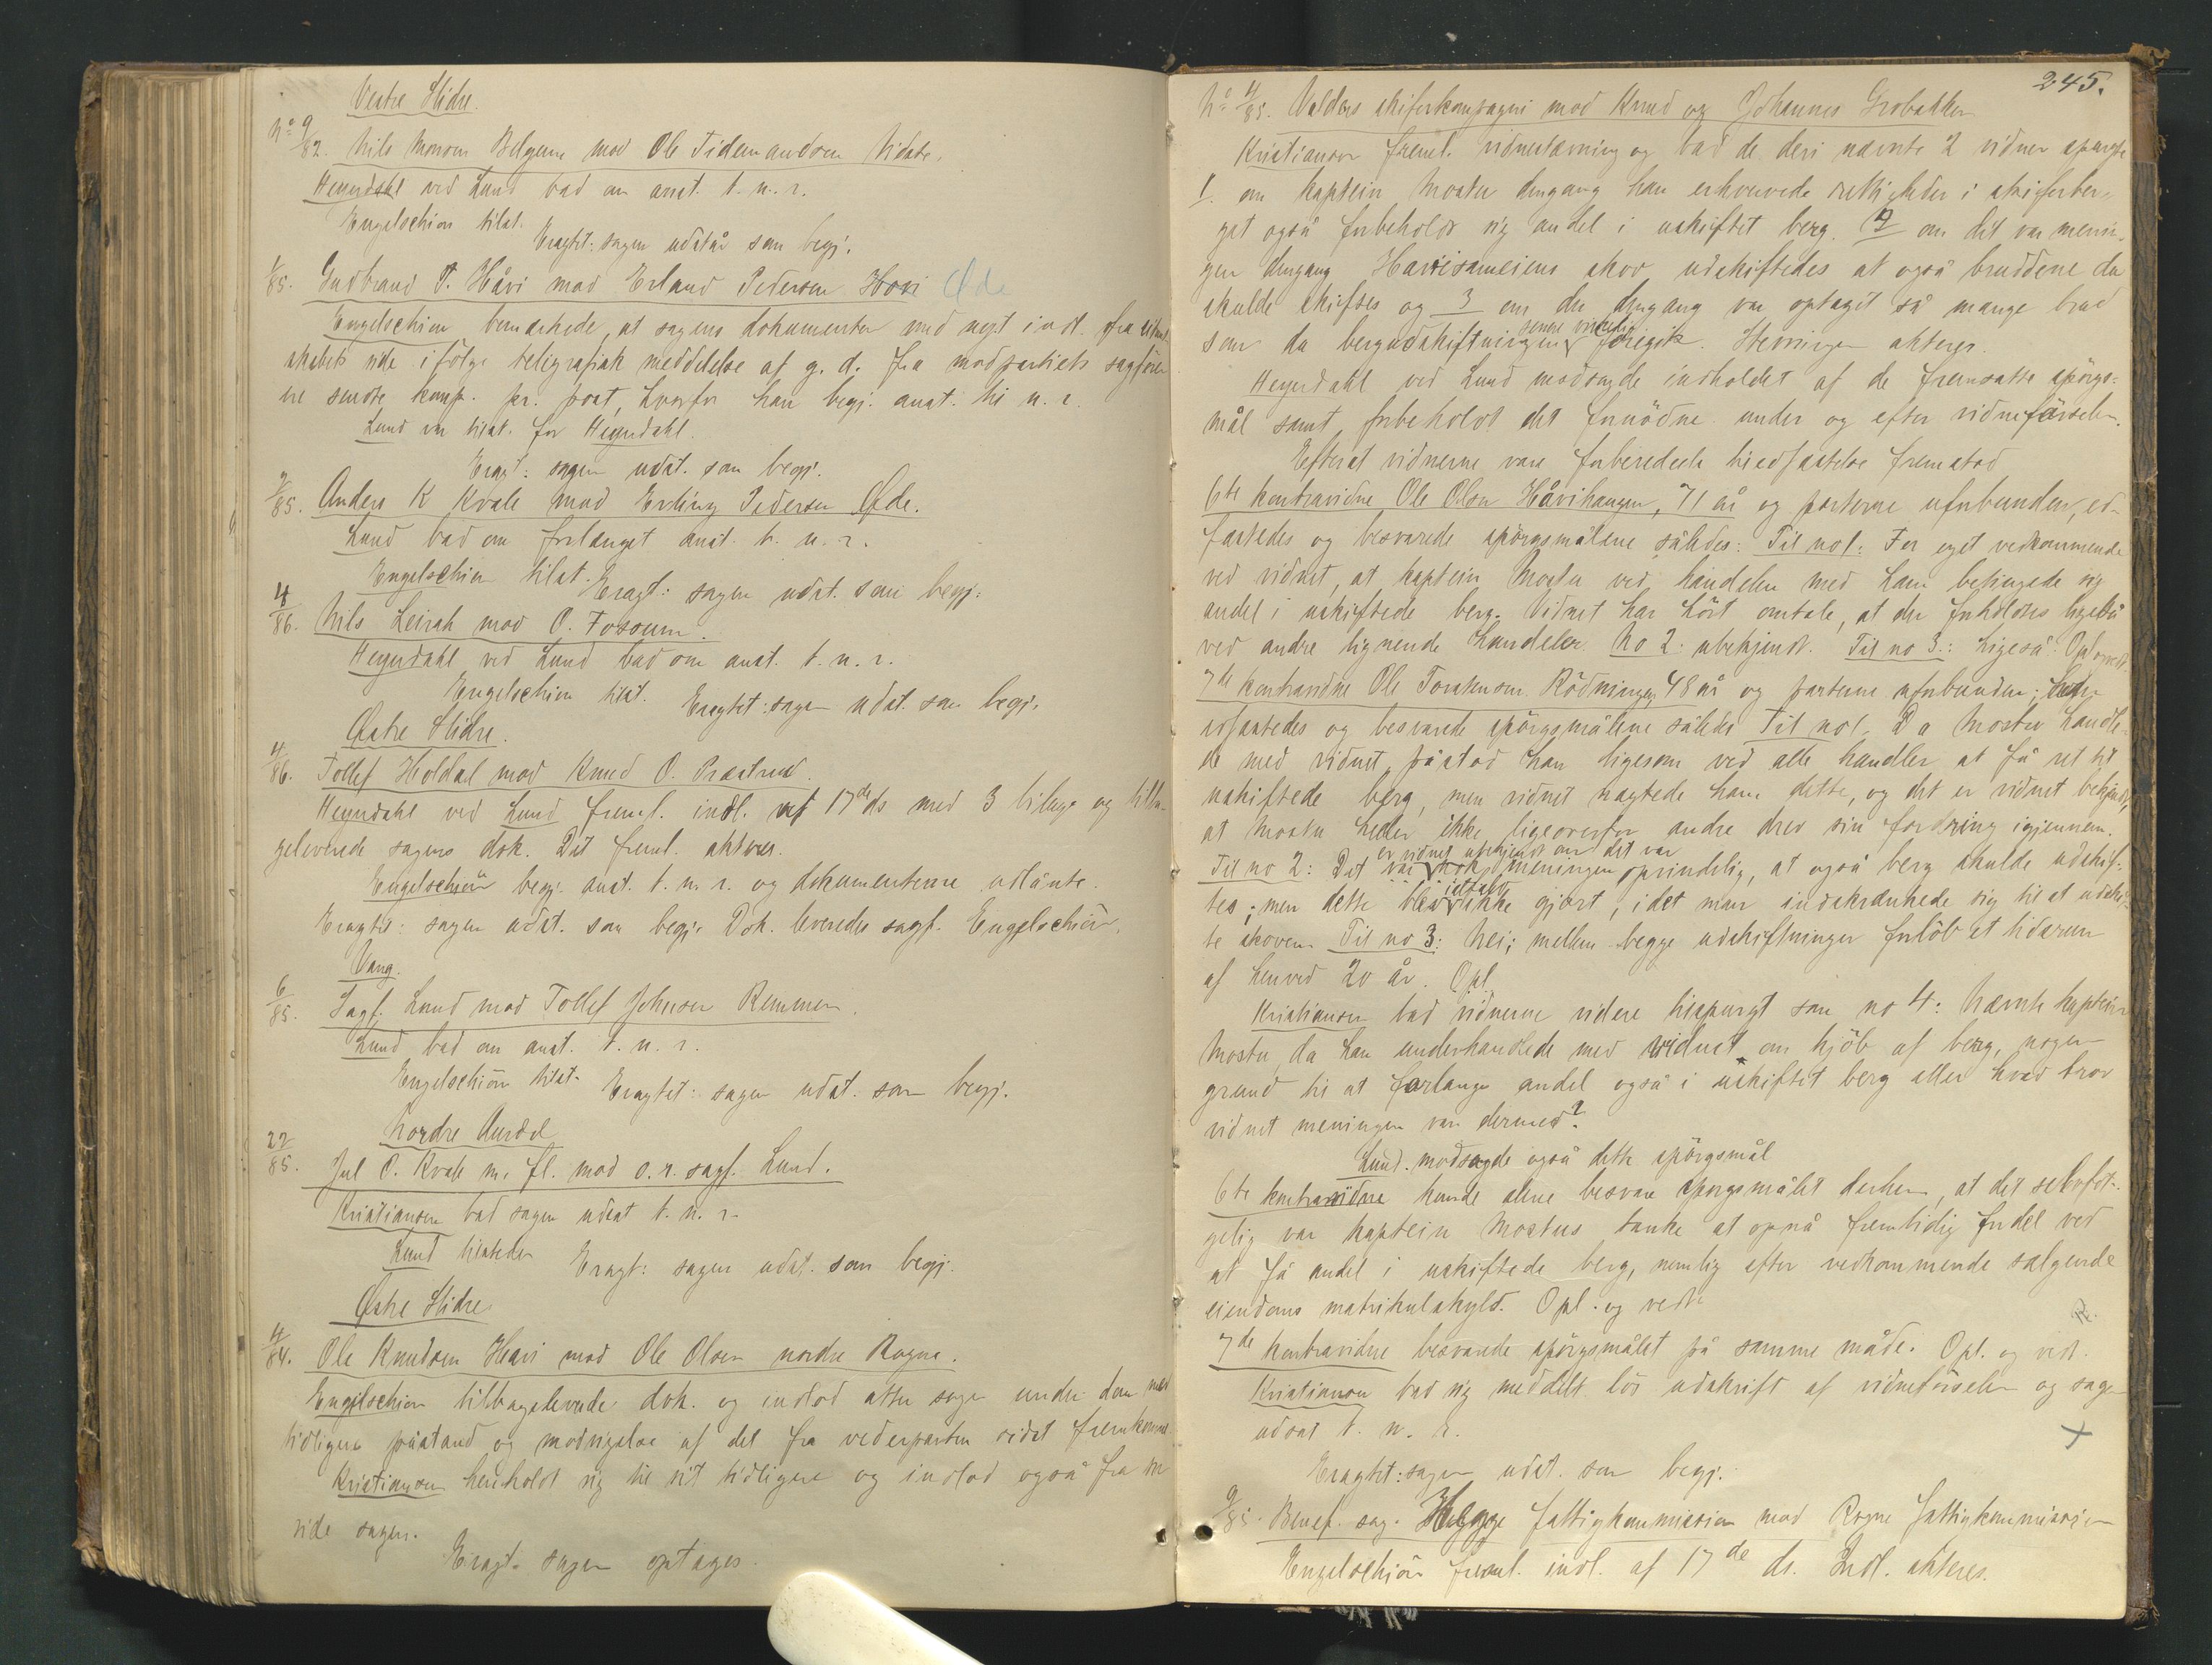 Vestre Slidre.
No 9/82. Nils Monsen Belgum mod Ole Tidemandsen
Heyerdahl ved Lund bad om anst. t. n. r.
Engelschiøn tilst.
Eragtet: sagen udstår som begj.
1/85. Gudbrand T. Håvi mod Erland Pedersen Hovi
Engelschiøn bemærkede, at sagens dokumenter med nyt indl. fra
skabets side ifölge telegrafisk meddelelse af g. d. fra modpartiets sagförer
ne sendte komp. pr. post, hvorfor han begj. anst. til n. r.
Lund var tilst. for Heyerdahl.
Eragt: sagen udst. som begj.
2/85. Anders K Kvale mod Erling Pedersen Øde.
Lund bad om forlænget anst. t. n. r.
Engelschiøn tilst.
Eragt: sagen udst. som begj.
4/86. Nils Leirah mod O. Fossum.
Heyerdahl ved Lund bad om anst. t. n. r.
Engelschiøn tilst. Eragtet: sagen udst. som begj.
Østre Slidre.
4/86. Tollef Holdal mod Knud O. Præstrud.
Heyerdahl ved Lund freml. indl. af 17de ds med 3 bilage og tilba-
geleverede sagens dok. Det freml. akteres.
Engelschiøn begj. anst. t. n. r. og dokumenterne udlånte.
Eragtet: sagen udst. som begj. Dok. leveredes sagf. Engelschiøn.
Vang.
6/85. Sagf. Lund mod Tollef Johnsen Remmen.
Lund bad om anst. t. n. r.
Engelschiøn tilst. Eragtet: sagen udst. som begj.
Nordre Aurdal
22/85. Jul O. Kvale m. fl. mod o. r. sagf. Lund.
Kristiansen bad sagen udsat t. n. r.
Lund tilsteder Eragt: sagen udst. som begj.
Østre Slidre
4/84. Ole Knudsen Heavi mod Ole Olsen nordre Rogne.
Engelschiøn tilbageleverede dok. og indlod atter sagen under den
tidligere påstand og modsigelse af det fra vederparten sidst fremkomne
Kristiansen henholdt sig til sit tidligere og indlod også fra
side sagen.
Eragt. sagen optages.
245.
No 4/85. Valders skiferkompagni mod Knud og Johannes Grobakken
Kristiansen freml. vidnestævning og bad de deri nævnte 2 vidner spurgte
1. om kaptein Mostu dengang han erhvervede rettigheder i skiferber-
get også forbeholdt sig andel i uskiftet berg. 2 om det var menin-
gen dengang Havisameiens skov udskiftedes at også bruddene da
skulde skiftes og 3 om der dengang var optaget så mange brud
som da bergudskiftningen senere virkelig foregik. Stevningen akteres.
Heyerdahl ved Lund modsagde indholdet af de fremsatte spörgs-
mål samt forbeholdt det fornödne under og efter vidneførselen.
Efterat vidnerne vare forberedede til edsaflæggelse fremstod
6te kontravidne Ole Olsen Håvihaugen, 71 år og parterne uforbunden, ed-
fæstedes og besvarede spörgsmålene således: Til no 1: For eget vedkommende
ved vidnet, at kaptein Mostu ved handelen med ham betingede sig
andel i uskiftede berg. Vidnet har hört omtale, at der forholdtes ligeså
ved andre lignende handeler. No 2: ubekjendt. Til no 3.: Ligeså. Opl
7de kontravidne Ole Rödningen, 48 år og parterne uforbunden;
edfæstedes og besvarede spörgsmålene således Til no 1. Da Moster handle-
de med vidnet, påstod han ligesom ved alle handler at få ret til
uskiftede berg, men vidnet nægtede ham dette, og det er vidnet bekjendt,
at Mostu heller ikke ligeoverfor andre drev sin fordring igjennem.
Til no 2: Det er vidnet ubekjendt om det var meningen oprindelig, at også berg skulde udskif-
tes; men dette blev ikke gjort, idet man indskrænkede sig til at udskif-
te skoven. Til no 3: Nei; mellem begge udskiftninger forlöb et tidsrum
af henved 20 år. Opl.
Kristiansen bad vidnerne videre tilspurgt som no 4: Nævnte kaptein
Mostu, da han underhandlede med vidnet om kjöb af berg, nogen
grund til at forlange andel også i uskiftet berg eller hvad tror
vidnet meningen var dermed?
Lund modsagde også dette spörgsmål
6te kontravidne kunde alene besvare spörgsmålet derhen, at det selvføl-
gelig var kaptein Mostus tanke at opnå fremtidig fordel ved
at få andel i uskiftede berg, nemlig efter vedkommende sælgende
eiendoms matrikulskyld. Opl. og vedt.
7de kontravidne besvarede spörgsmålet på samme måde. Opl. og vedt.
Kristiansen bad sig meddelt lös udskrift af vidneførselen og sagen
udsat t. n. r.
Eragtet: sagen udst. som begj.
9/85. Benef. sag. Hegge fattigkommission mod Rogne fattigkommission
Engelschiøn freml. indl. af 17de ds. Indl. akteres.